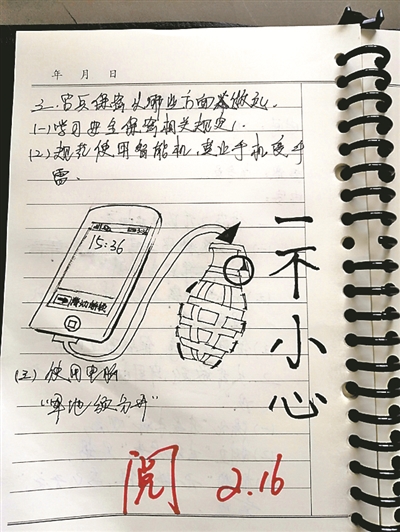 年 月 日
三.官兵保密从哪些方面来做起.
(一)学习安全保密相关规定;
(2)规范使用智能机,莫让手机变手
雷.
15:36
滑动解锁
一不小心
(三)使用电脑
"军地须分开"
阅 2.16